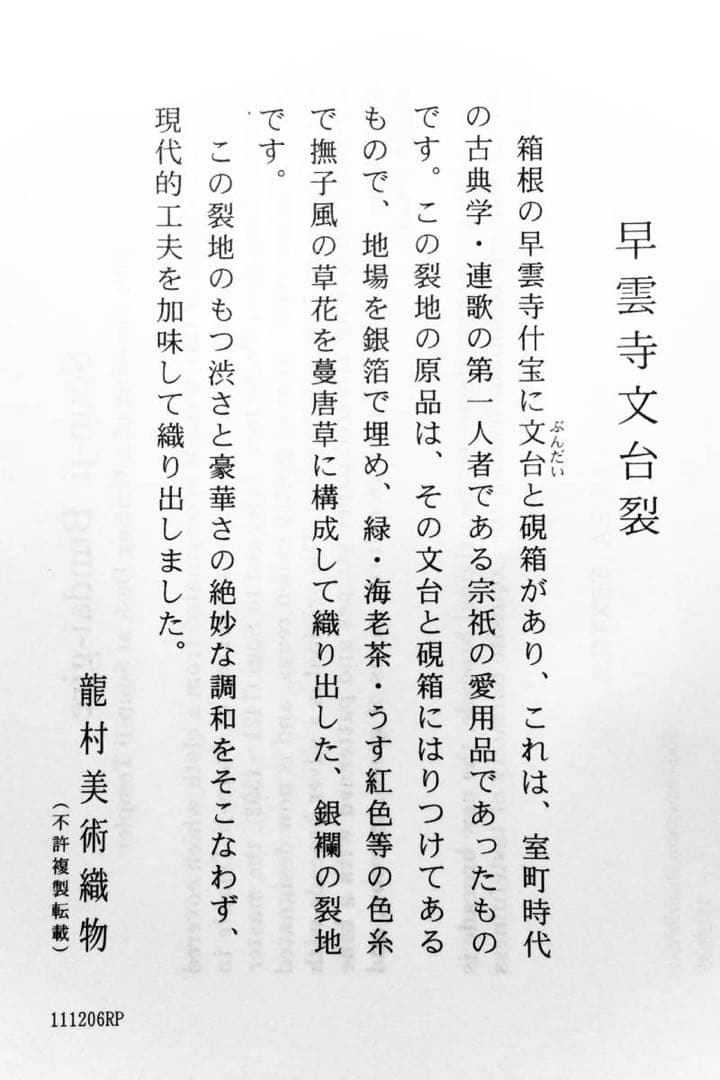 早雲寺文台裂
箱根の早雲寺什宝に文台と硯箱があり、これは、室町時代
ぶんだい
の古典学・連歌の第一人者である宗祇の愛用品であったもの
です。この裂地の原品は、その文台と硯箱にはりつけてある
もので、地場を銀箔で埋め、緑・海老茶・うす紅色等の色糸
で撫子風の草花を蔓唐草に構成して織り出した、銀襴の裂地
です。
この裂地のもつ渋さと豪華さの絶妙な調和をそこなわず、
現代的工夫を加味して織り出しました。
龍村美術織物
(不許複製転載)
111206RP